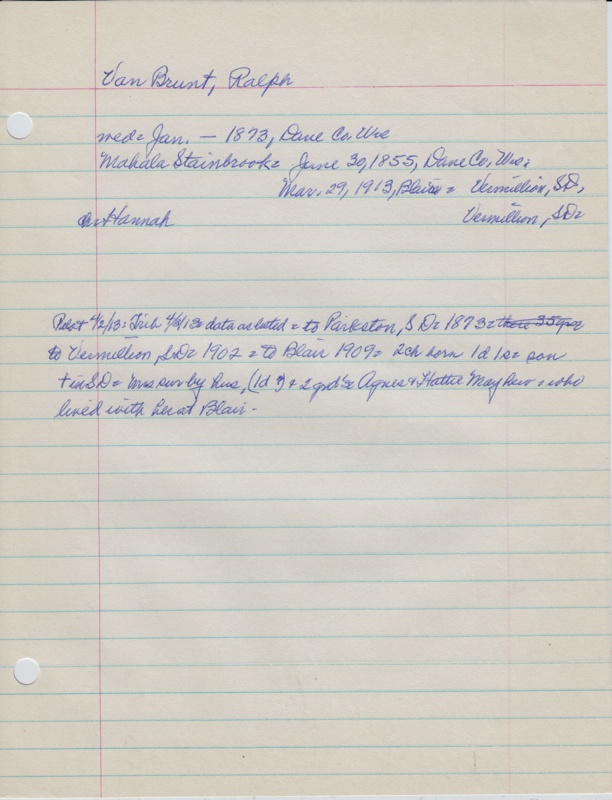 Van Brunt, Ralph
med= Jan. — 1873, Dane Co. Wis
Mahala Stainbrook= June 30, 1855, Dane Co, Wis.
Mar. 29, 1913, Blair= Vermillion, SD,
Hannah Vermillion, SD=
Pilot 4/2/13: Trib data as listed = to Parkston, SD= 1873=
to Vermillion, SD= 1902 = to Blair 1909= 2ch born 1d 1s= son
in SD= Mrs surv by hus, (1d ?) & 2 grd's= Agnes & Hattie May
lived with her at Blair.